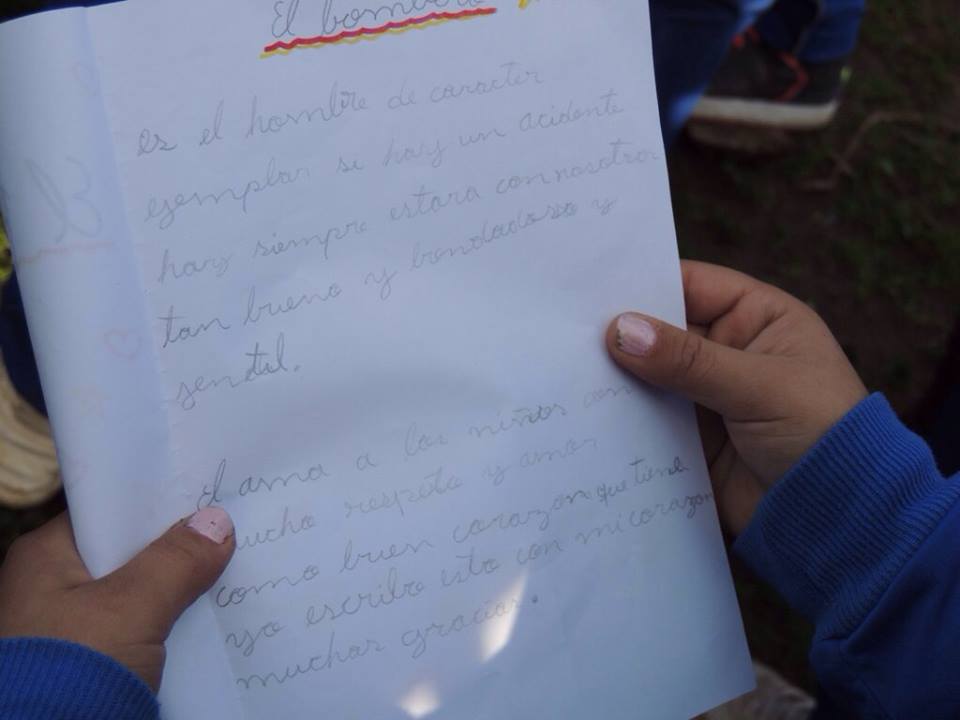 El bombero
es el hombre de caracter
ejemplar si hay un acidente
hay siempre estara con nosotros
tan bueno y bondadoso y
jendtil.
El ama a los niños con
mucho respeto y amor
como buen corazon que tiene
yo escribo esto con mi corazon
muchas gracias.